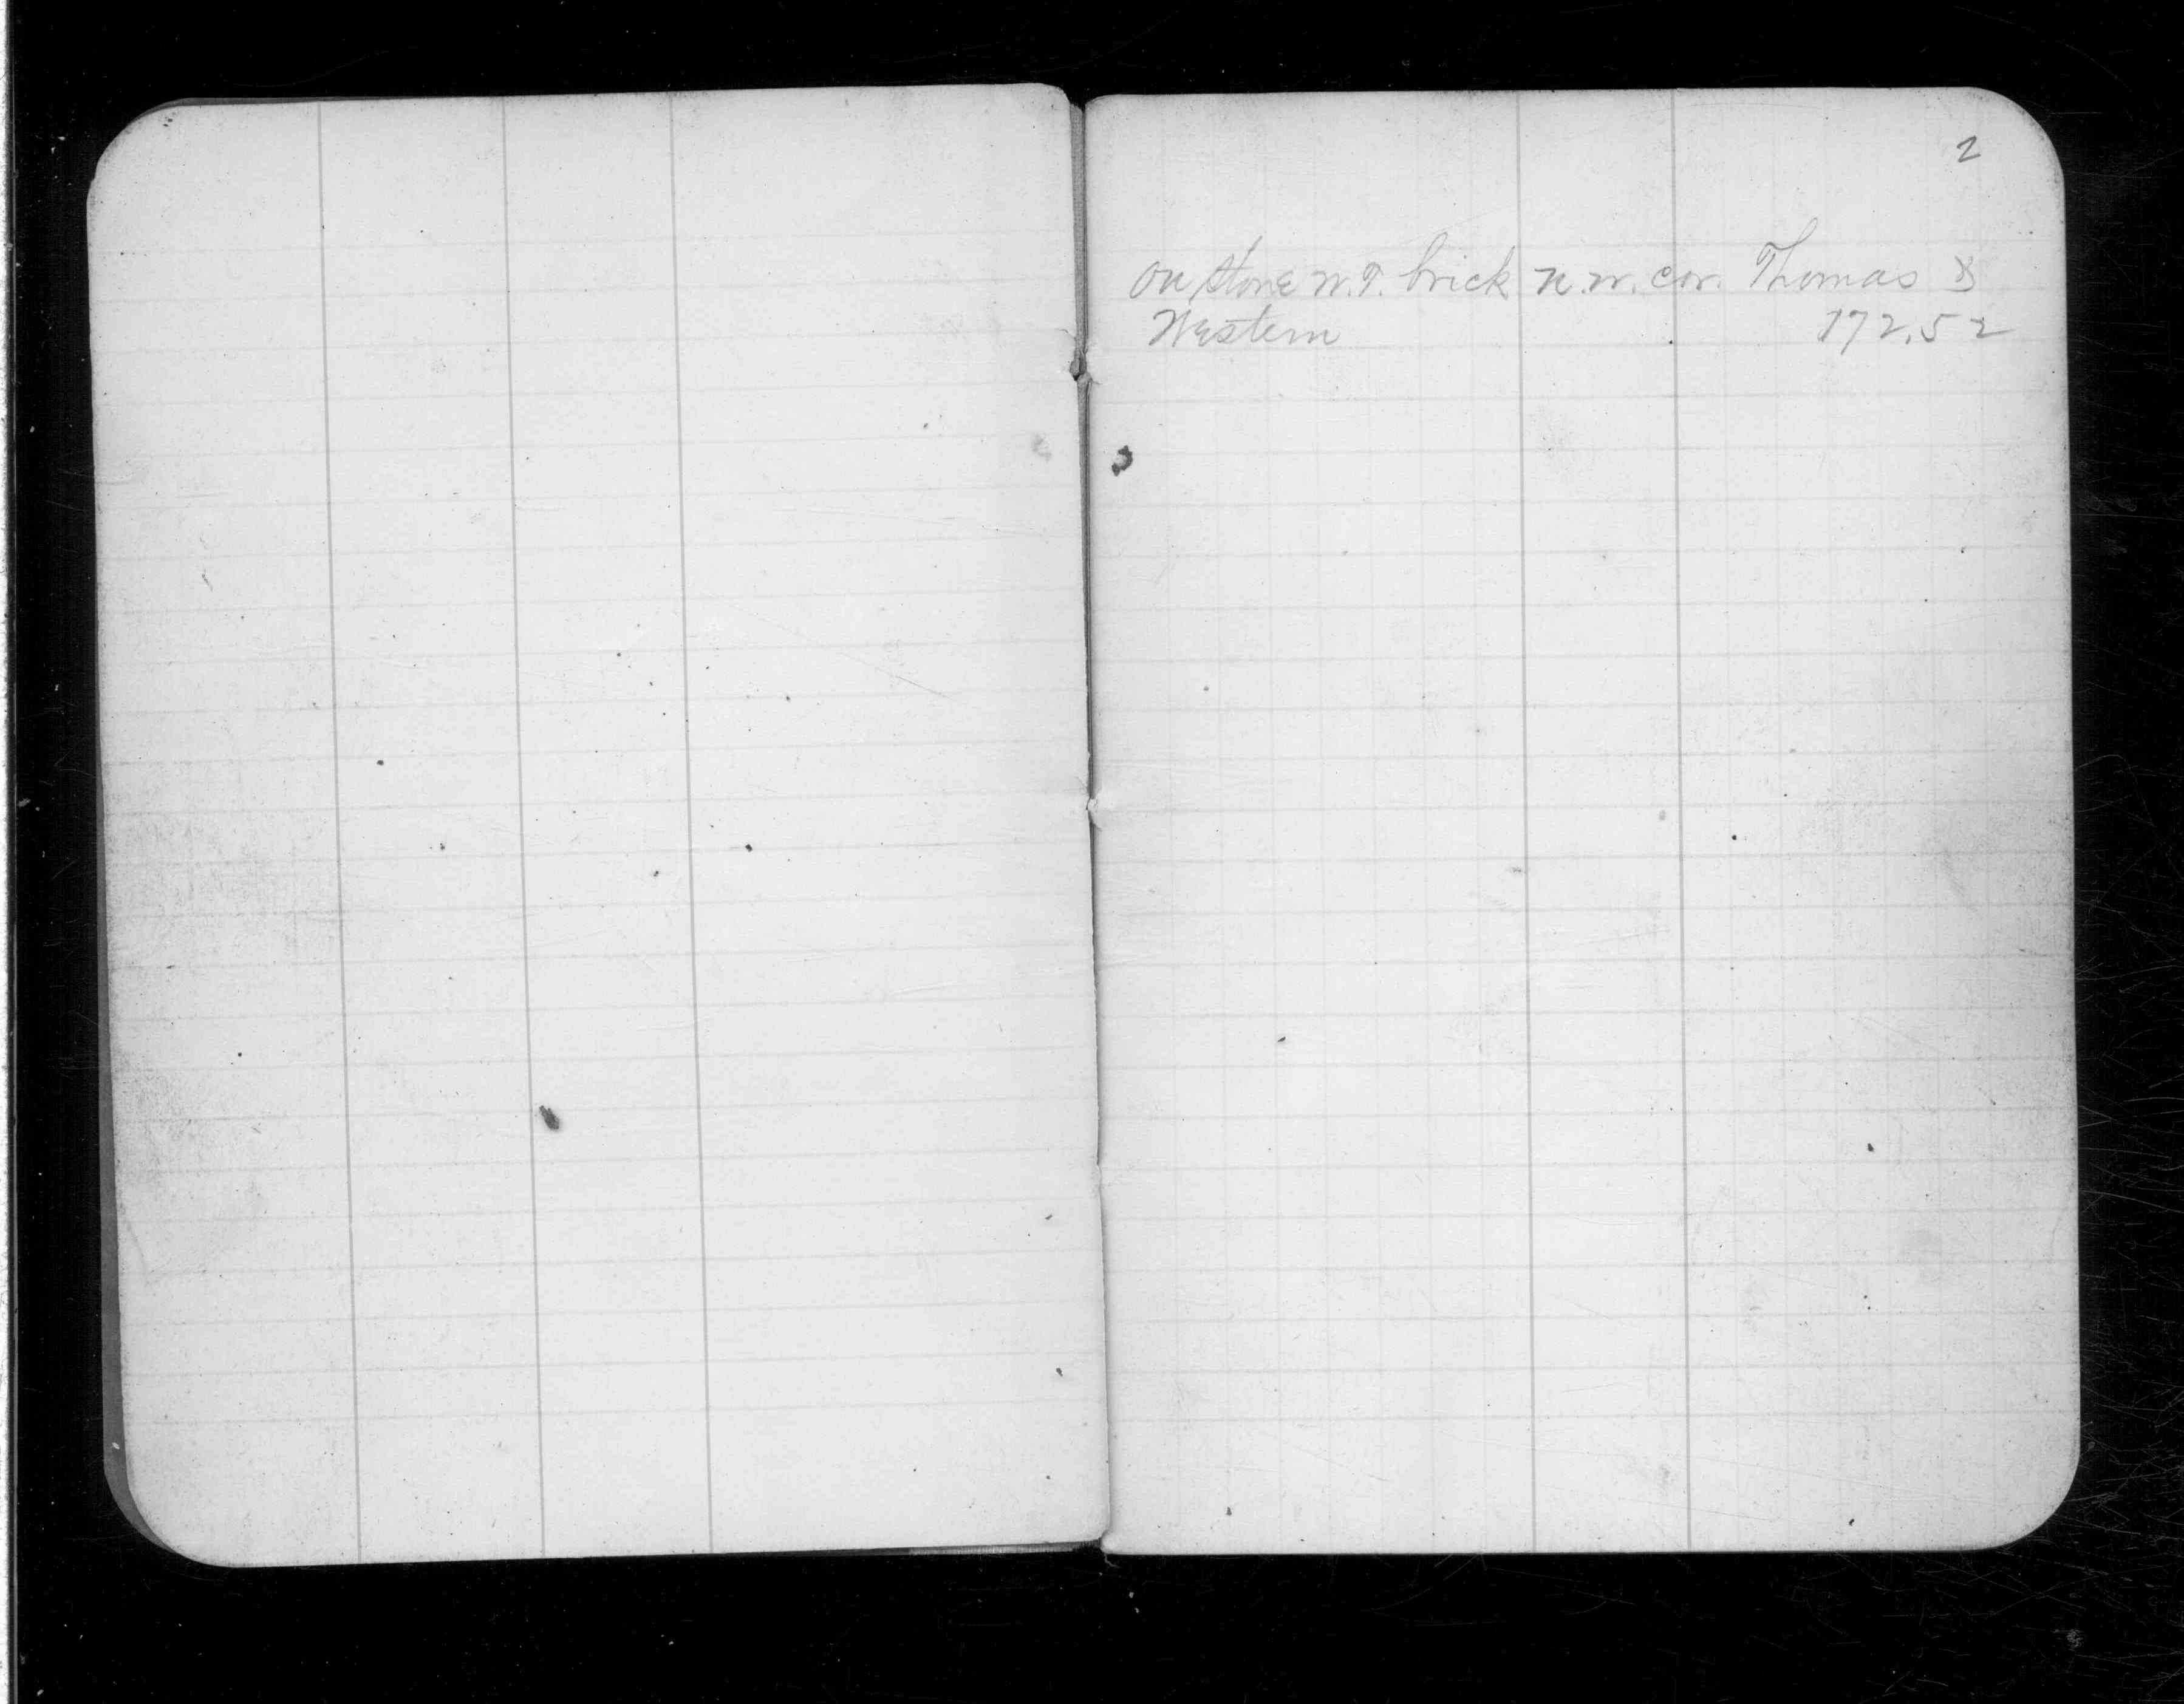 2
On stone W.T. brick N.W. cor. Thomas &
Western 172.52